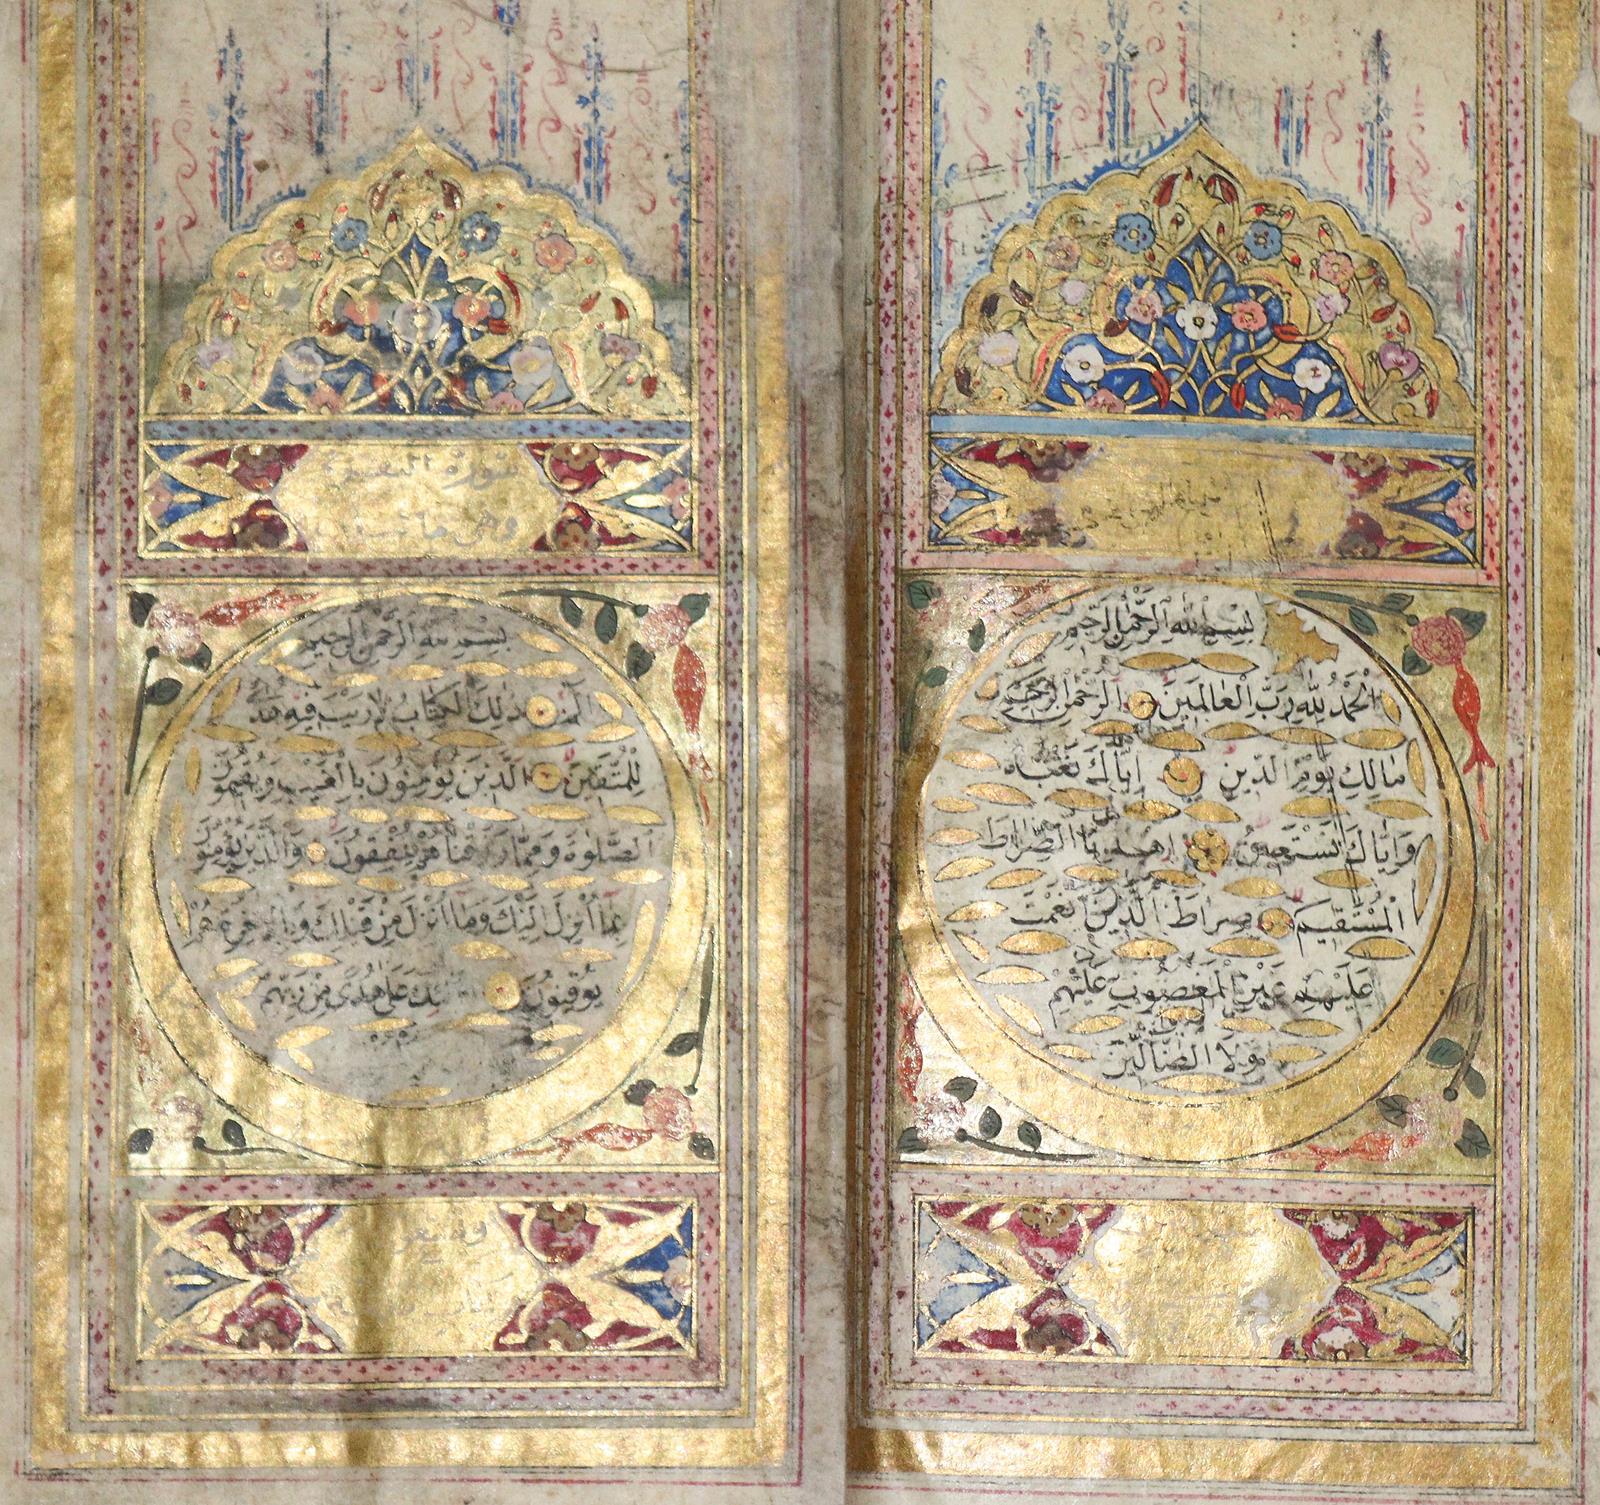 بسم الله الرحمن الرحيم
الحمد لله رب العالمين الرحمن الرحيم
مالك يوم الدين إياك نعبد
وإياك نستعين اهدنا الصراط
المستقيم صراط الذين نعمت
عليهم غير المغضوب عليهم
ولا الضالين
سورة البقرة
وهي
بسم الله الرحمن الرحيم
الم ذلك الكتاب لا ريب فيه هدى
للمتقين الذين يؤمنون باالغيب ويقيمون
الصلوة ومما رزقناهم ينفقون والذين يؤمنون
بما أنزل إليك وما أنزل من قبلك وبالاخرة هم
يوقنون على هدى من ربهم